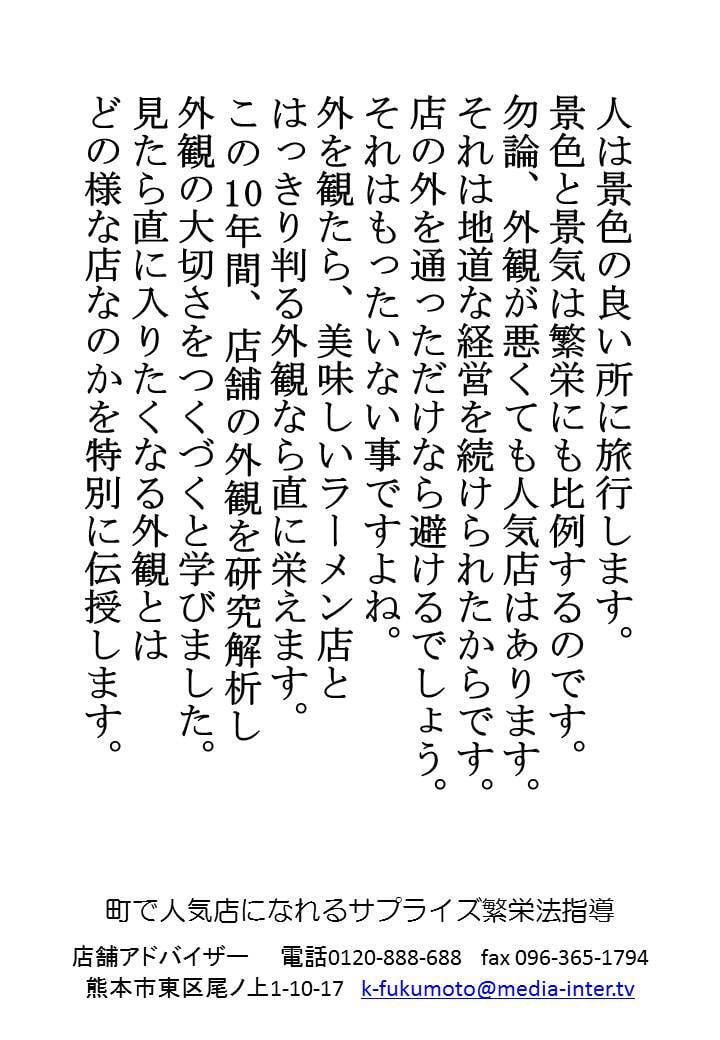 人は景色の良い所に旅行します。
景色と景気は繁栄にも比例するのです。
勿論、外観が悪くても人気店はあります。
それは地道な経営を続けられたからです。
店の外を通っただけなら避けるでしょう。
それはもったいない事ですよね。
外を観たら、美味しいラーメン店と
はっきり判る外観なら直に栄えます。
この10年間、店舗の外観を研究解析し
外観の大切さをつくづくと学びました。
見たら直に入りたくなる外観とは
どの様な店なのかを特別に伝授します。
町で人気店になれるサプライズ繁栄法指導
店舗アドバイザー 電話0120-888-688 fax 096-365-1794
熊本市東区尾ノ上1-10-17 k-fukumoto@media-inter.tv